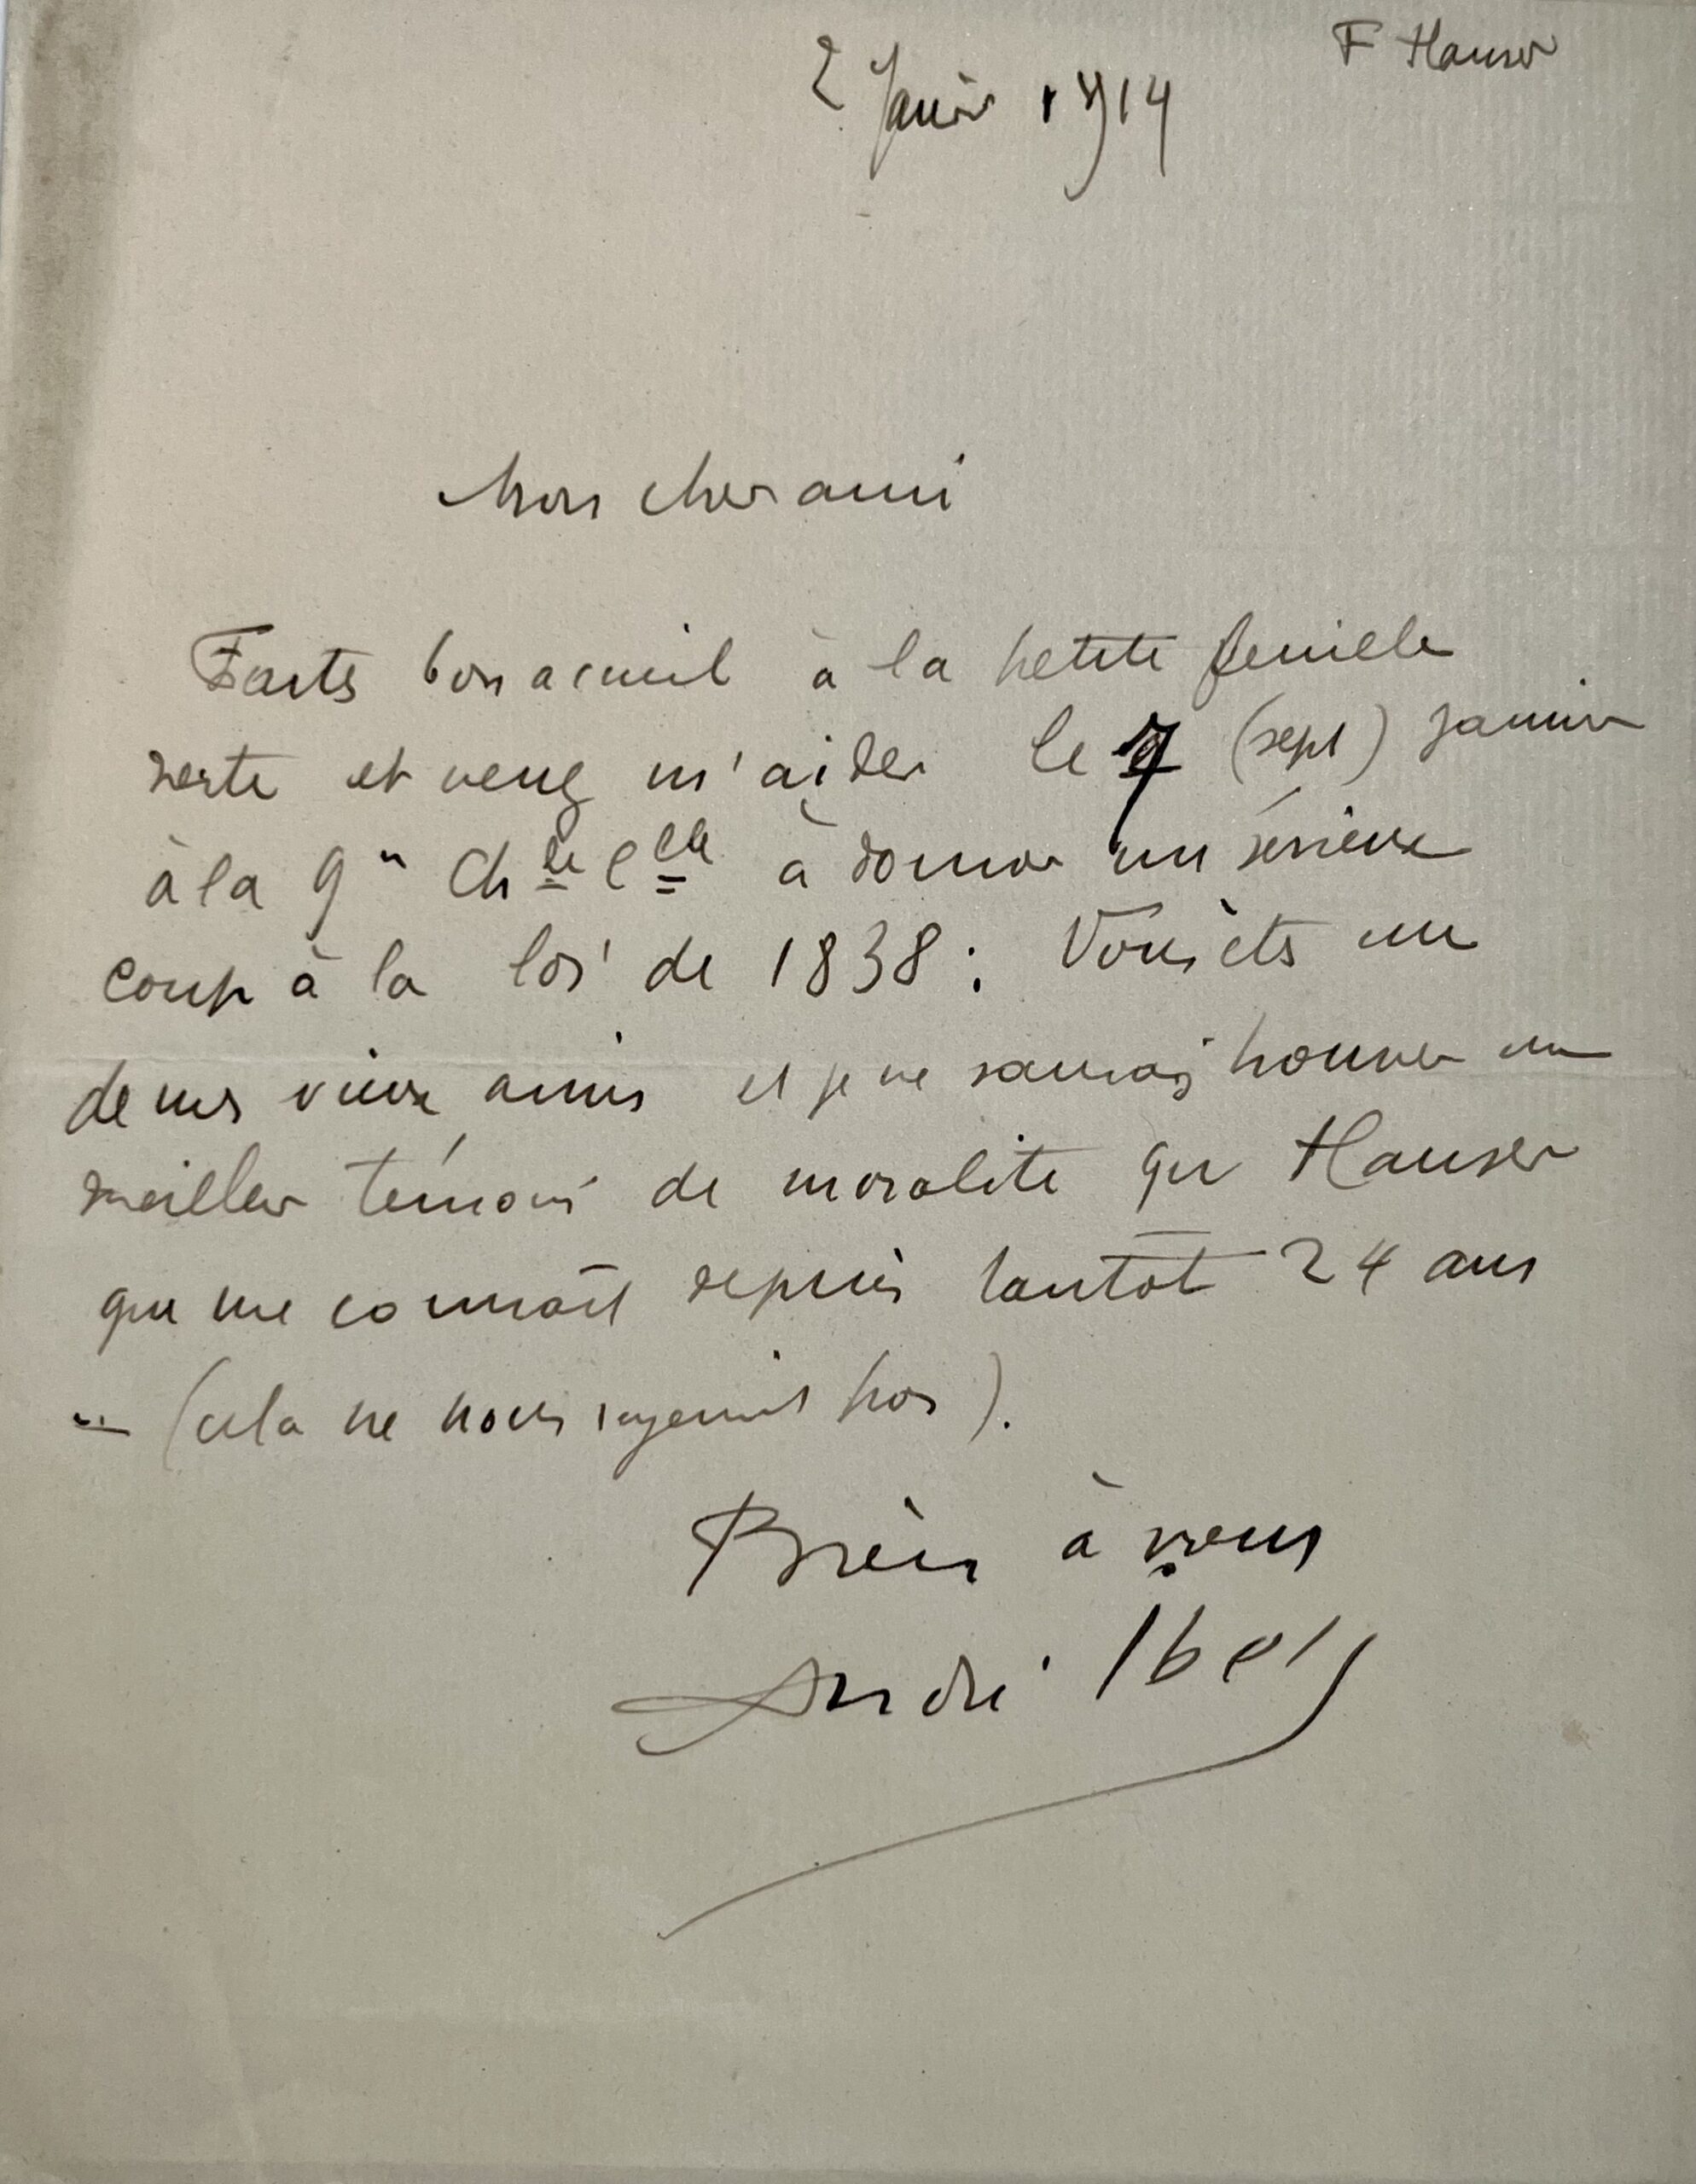 F Hauser
2 Janvier 1914
Mon cher ami
Faites bon acueil à la petite feuille
verte et venez m'aider le 7 (sept) Janvier
à la 9e Chbre Clle à donner un sérieux
coup à la loi de 1838 : Vous êtes un
de mes vieux amis et je ne saurais trouver un
meilleur témoin de moralité que Hauser
qui me connaît depuis tantôt 24 ans
– (cela ne nous rajeunit pas).
Bien à vous
André Ibels